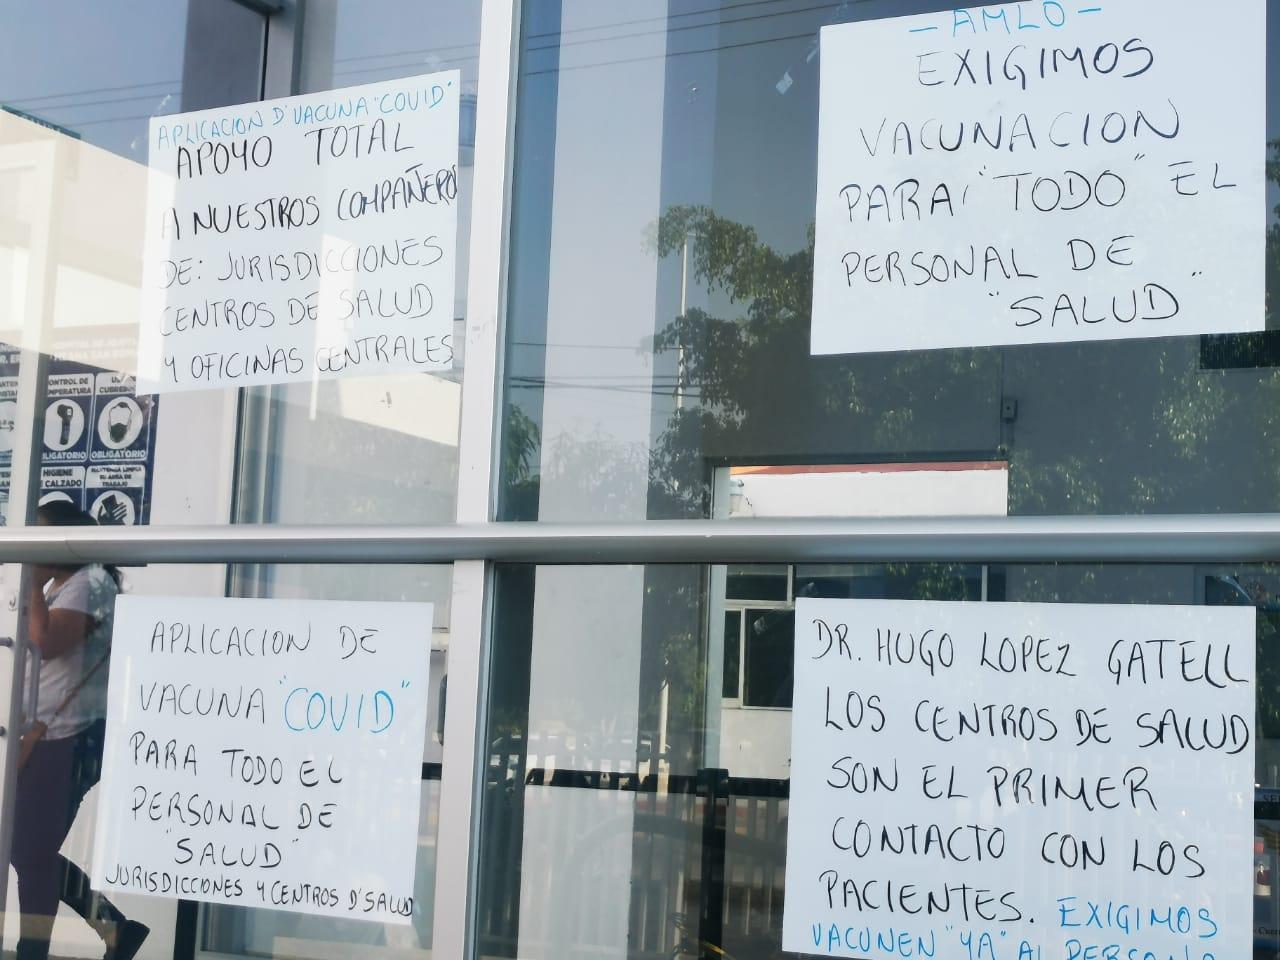 APLICACION D'VACUNA "COVID"
APOYO TOTAL
A NUESTROS COMPAÑEROS
DE: JURISDICCIONES
CENTROS DE SALUD
Y OFICINAS CENTRALES
- AMLO -
EXIGIMOS
VACUNACION
PARA "TODO" EL
PERSONAL DE
"SALUD"
CONTROL DE
OBLIGATORIO
OBLIGATORIO
HIGIENE
CALZADO
MANTENGA LIMPIA
SU AREA DE
TRABAJO
APLICACION DE
VACUNA "COVID"
PARA TODO EL
PERSONAL DE
"SALUD"
JURISDICCIONES Y CENTROS D'SALUD
DR. HUGO LOPEZ GATELL
LOS CENTROS DE SALUD
SON EL PRIMER
CONTACTO CON LOS
PACIENTES. EXIGIMOS
VACUNEN "YA" AL PERSONA